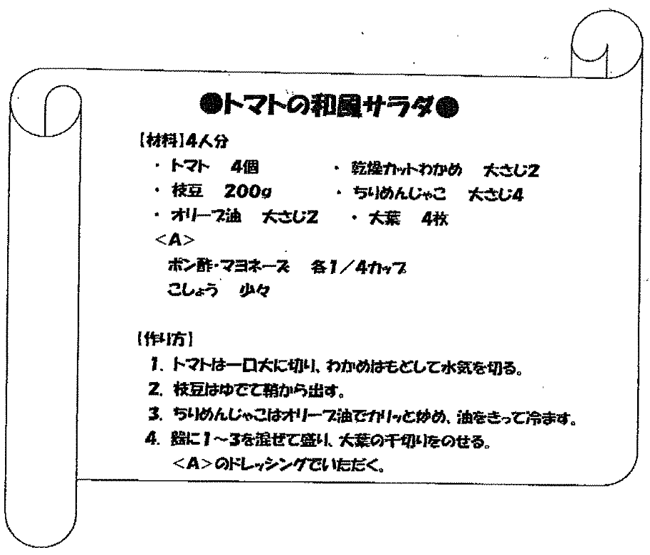 ●トマトの和風サラダ●
【材料】4人分
・ トマト 4個 ・ 乾燥カットわかめ 大さじ2
・ 枝豆 200g ・ ちりめんじゃこ 大さじ4
・ オリーブ油 大さじ2 ・ 大葉 4枚
<A>
ポン酢・マヨネーズ 各1/4カップ
こしょう 少々
【作り方】
1. トマトは一口大に切り、わかめはもどして水気を切る。
2. 枝豆はゆでて鞘から出す。
3. ちりめんじゃこはオリーブ油でカリッと炒め、油をきって冷ます。
4. 器に1〜3を混ぜて盛り、大葉の千切りをのせる。
<A>のドレッシングでいただく。